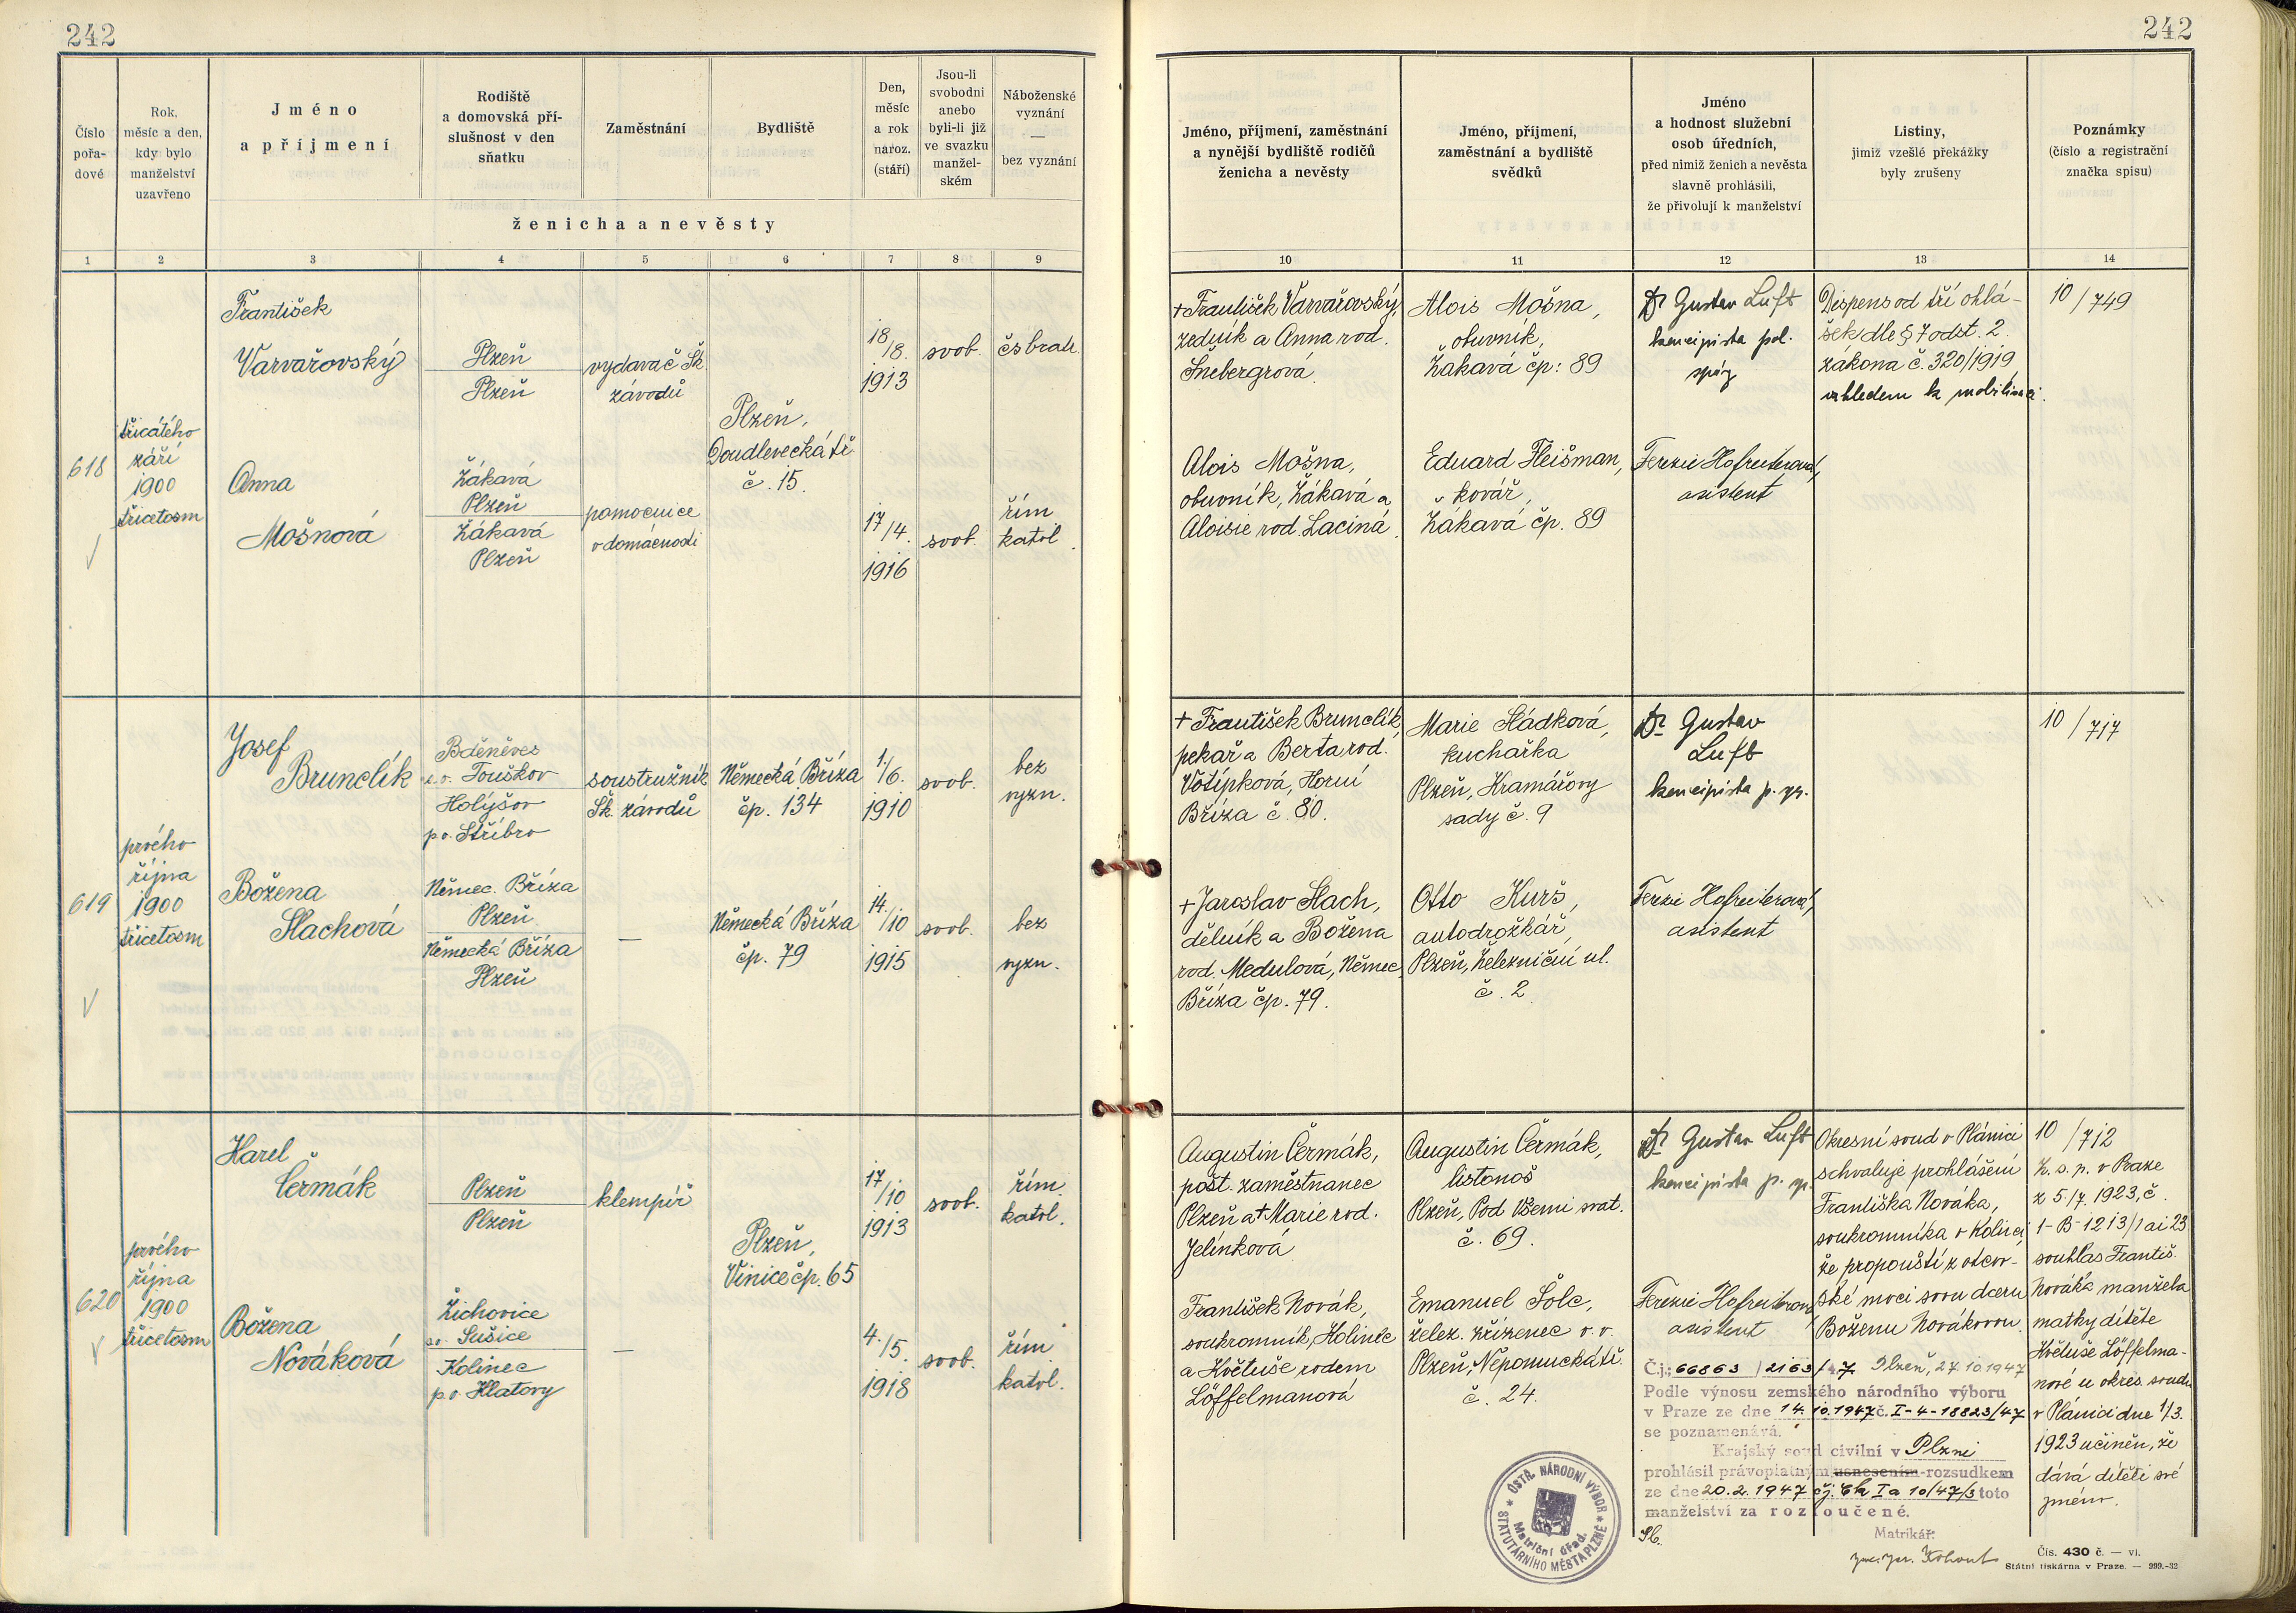 242
242
Číslo
pořa-
dové
Rok,
měsíc a den,
kdy bylo
manželství
uzavřeno
Jméno
a příjmení
Rodiště
a domovská pří-
slušnost v den
sňatku
Zaměstnání
Bydliště
Den,
měsíc
a rok
naroz.
(stáří)
Jsou-li
svobodni
anebo
byli-li již
ve svazku
manžel-
ském
Náboženské
vyznání
—
bez vyznání
ženicha a nevěsty
1 2 3 4 5 6 7 8 9
Jméno, příjmení, zaměstnání
a nynější bydliště rodičů
ženicha a nevěsty
Jméno, příjmení,
zaměstnání a bydliště
svědků
Jméno
a hodnost služební
osob úředních,
před nimiž ženich a nevěsta
slavně prohlásili,
že přivolují k manželství
Listiny,
jimiž vzešlé překážky
byly zrušeny
Poznámky
(číslo a registrační
značka spisu)
10 11 12 13 14
618
třicátého
září
1900
třicetosm
František
Varvařovský
Plzeň
Plzeň
vydavač Šk.
závodů
Plzeň,
Doudlevecká tř.
č. 15.
18/8.
1913
svob.
čs bratr.
Anna
Mošnová
Žákavá
Plzeň
Žákavá
Plzeň
pomocnice
v domácnosti
17/4.
1916
svob.
řím
katol.
+ František Varvařovský,
zedník a Anna rod.
Šnebergrová.
Alois Mošna,
obuvník,
Žákavá čp: 89
Dr Gustav Luft
koncipista pol.
správy
Dispens od tří ohlá-
šek dle § 7 odst. 2.
zákona č. 320/1919
vzhledem k mobilisaci.
10/749
Alois Mošna,
obuvník, Žákavá a
Aloisie rod. Laciná.
Eduard Fleišman,
kovář,
Žákavá čp. 89
Terezie Hofreiterová,
asistent
619
prvého
října
1900
třicetosm
Josef
Brunclík
Bděněves
s.o. Touškov
Holýšov
p.o. Stříbro
soustružník
Šk. závodů
Německá Bříza
čp. 134
1./6.
1910
svob.
bez
vyzn.
Božena
Slachová
Němec. Bříza
Plzeň
Německá Bříza
Plzeň
—
Německá Bříza
čp. 79
14./10
1915
svob.
bez
vyzn.
+ František Brunclík,
pekař a Berta rod.
Votípková, Horní
Bříza č. 80.
Marie Sládková,
kuchařka
Plzeň, Kramářovy
sady č. 9
Dr Gustav
Luft
koncipista p. spr.
10/717
+ Jaroslav Slach,
dělník a Božena
rod. Medulová, Němec.
Bříza čp. 79.
Otto Kurš,
autodrožkář,
Plzeň, Železniční ul.
č. 2
Terezie Hofreiterová,
asistent
620
prvého
října
1900
třicetosm
Karel
Čermák
Plzeň
Plzeň
klempíř
Plzeň,
Vinice čp. 65
17/10
1913
svob.
řím.
katol.
Božena
Nováková
Žichovice
so. Sušice
Kolinec
p.o Klatovy
—
4./5.
1918
svob.
řím
katol.
Augustin Čermák,
pošt. zaměstnanec
Plzeň a + Marie rod.
Jelínková
Augustin Čermák,
listonoš
Plzeň, Pod Všemi svat.
č. 69.
Dr Gustav Luft
koncipista p. spr.
Okresní soud v Plánici
schvaluje prohlášení
Františka Nováka,
soukromníka v Kolinci,
že propouští z otcov-
ské moci svou dceru
Boženu Novákovou.
10/712
Z. s. p. v Praze
z 5./7. 1923, č.
1-B-1213/1 ai 23
souhlas Františ.
Nováka manžela
matky dítěte
Květuše Löffelma-
nové u okres. soudu
v Plánici dne 1/3.
1923 učiněn, že
dává dítěti své
jméno.
František Novák,
soukromník, Kolinec
a Květuše rodem
Löffelmanová
Emanuel Šolc,
želez. zřízenec v. v.
Plzeň, Nepomucká tř.
č. 24.
Terezie Hofreiterová
asistent
Č.j.: 66863/2163/47 Plzeň, 27.10.1947
Podle výnosu zemského národního výboru
v Praze ze dne 14.10.1947 č. I-4-18823/47
se poznamenává.
Krajský soud civilní v Plzni
prohlásil právoplatným usnesením-rozsudkem
ze dne 20.2.1947 čj. Ck Ia 10/47/3 toto
manželství za rozloučené.
Matrikář:
Kohout
ÚSTŘ. NÁRODNÍ VÝBOR
STATUTÁRNÍHO MĚSTA PLZNĚ
Matriční úřad.
Čís. 430 č. — vi.
Státní tiskárna v Praze. — 999.-32